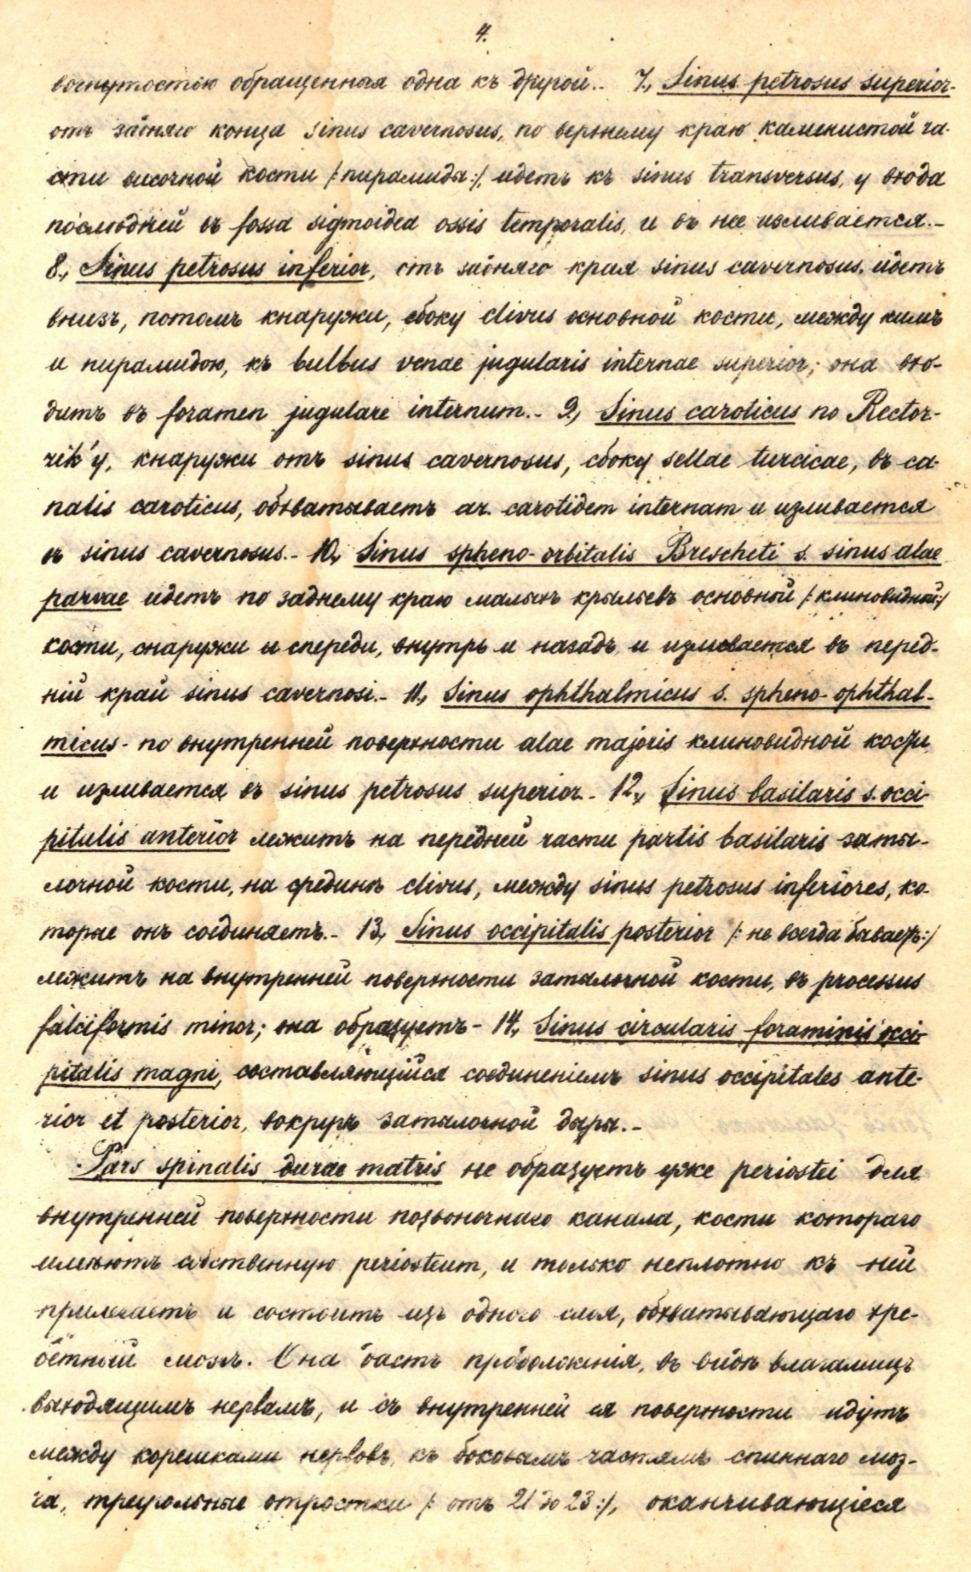 4.
вогнутостью обращенная одна къ другой.- 7., Sinus petrosus superior-
отъ задняго конца sinus cavernosus, по верхнему краю каменистой ча-
сти височной кости /:пирамида:/, идетъ къ sinus transversus, у входа
послѣдней въ fossa sigmoidea ossis temporalis, и въ нее изливается.-
8., Sinus petrosus inferior, отъ задняго края sinus cavernosus, идетъ
внизъ, потомъ кнаружи, сбоку clivus основной кости, между нимъ
и пирамидою, къ bulbus venae jugularis internae superior; она вхо-
дитъ въ foramen jugulare internum.- 9., Sinus caroticus по Rector-
zik'у, кнаружи отъ sinus cavernosus, сбоку sellae turcicae, въ ca-
nalis caroticus, обхватываетъ ar. carotidem internam и изливается
въ sinus cavernosus.- 10., Sinus spheno-orbitalis Brescheti s. sinus alae
parvae идетъ по заднему краю малыхъ крыльевъ основной /:клиновидной:/
кости, снаружи и спереди, внутрь и назадъ и изливается въ перед-
ній край sinus cavernosi.- 11., Sinus ophthalmicus s. spheno-ophthal-
micus- по внутренней поверхности alae majoris клиновидной кости
и изливается въ sinus petrosus superior.- 12., Sinus basilaris s. occi-
pitalis anterior лежитъ на передней части partis basilaris заты-
лочной кости, на срединѣ clivus, между sinus petrosus inferiores, ко-
торые онъ соединяетъ.- 13., Sinus occipitalis posterior /:не всегда бываетъ:/
лежитъ на внутренней поверхности затылочной кости, въ processus
falciformis minor; она образуетъ- 14., Sinus circularis foraminis occi-
pitalis magni, составляющійся соединеніемъ sinus occipitales ante-
rior et posterior, вокругъ затылочной дыры.-
Pars spinalis durae matris не образуетъ уже periostei для
внутренней поверхности позвоночнаго канала, кости котораго
имѣютъ собственную periosteum, и только неплотно къ ней
прилегаетъ и состоитъ изъ одного слоя, обхватывающаго хре-
бетный мозгъ. Она даетъ продолженія, въ видѣ влагалищъ
выходящимъ нервамъ, и съ внутренней ея поверхности идутъ
между корешками нервовъ, къ боковымъ частямъ спиннаго моз-
га, треугольные отростки /:отъ 21 до 23:/, оканчивающіеся